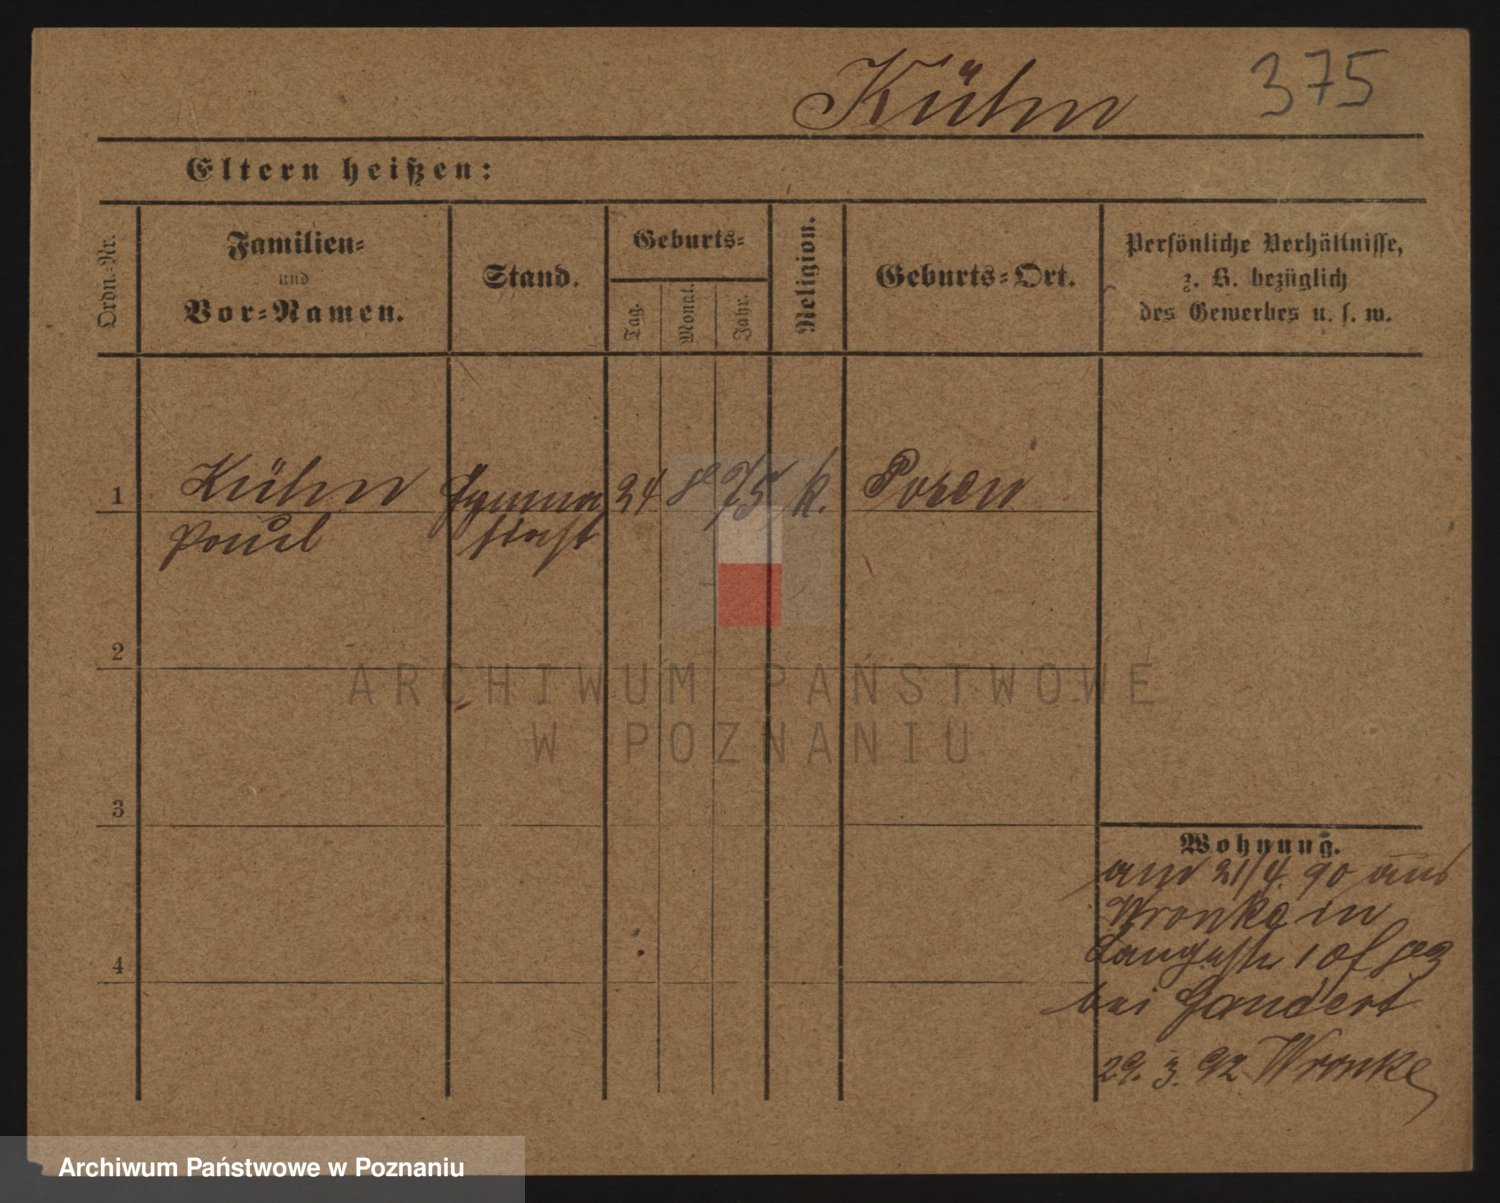 Kühn 375
Eltern heißen:
Ordn.-Nr.
Familien-
und
Vor-Namen.
Stand.
Geburts-
Tag. Monat. Jahr.
Religion.
Geburts-Ort.
Persönliche Verhältnisse,
z. B. bezüglich
des Gewerbes u. s. w.
1 Kühn Gymna 24 8 75 k. Posen
Paul siast
2
3
4
Wohnung.
am 21/4. 90 aus
Wronke in
Langestr 1
bei Gandert
29. 3. 92 Wronke
ARCHIWUM PAŃSTWOWE
W POZNANIU
Archiwum Państwowe w Poznaniu